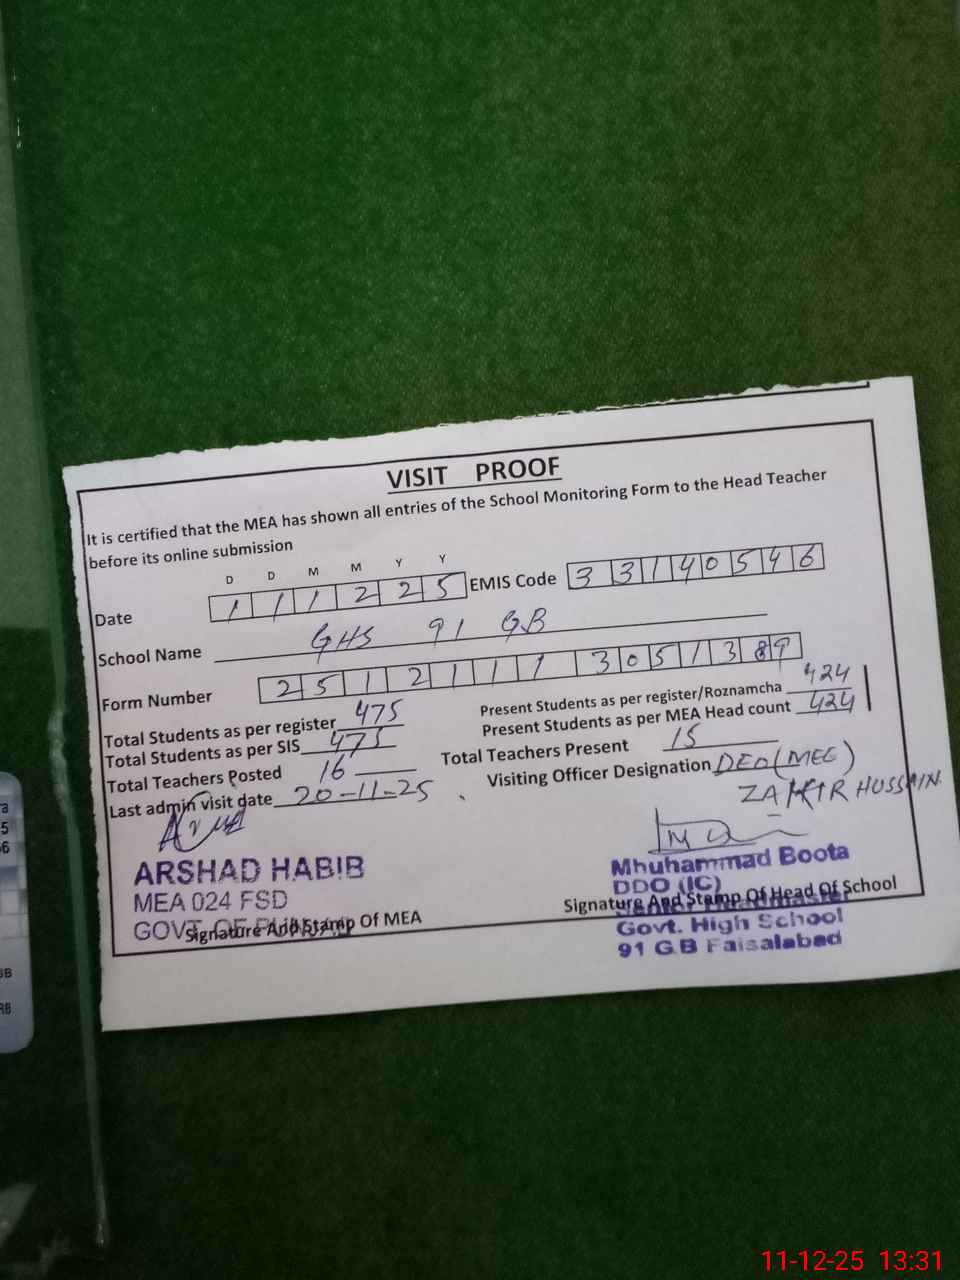 VISIT PROOF
It is certified that the MEA has shown all entries of the School Monitoring Form to the Head Teacher
before its online submission
D D M M Y Y
Date 1 1 1 2 2 5 EMIS Code 3 3 1 4 0 5 4 6
School Name GHS 91 GB
Form Number 2 5 1 2 1 1 1 3 0 5 1 3 8 9
Total Students as per register 475 Present Students as per register/Roznamcha 424
Total Students as per SIS 475 Present Students as per MEA Head count 424
Total Teachers Posted 16 Total Teachers Present 15
Last admin visit date 20-11-25 Visiting Officer Designation DEO (MEE)
ZAKIR HUSSAIN
ARSHAD HABIB
MEA 024 FSD
GOVT. OF PUNJAB
Signature And Stamp Of MEA
Mhuhammad Boota
DDO (IC)
Signature And Stamp Of Head Of School
Senior Headmaster
Govt. High School
91 G.B Faisalabad
5
6
11-12-25 13:31